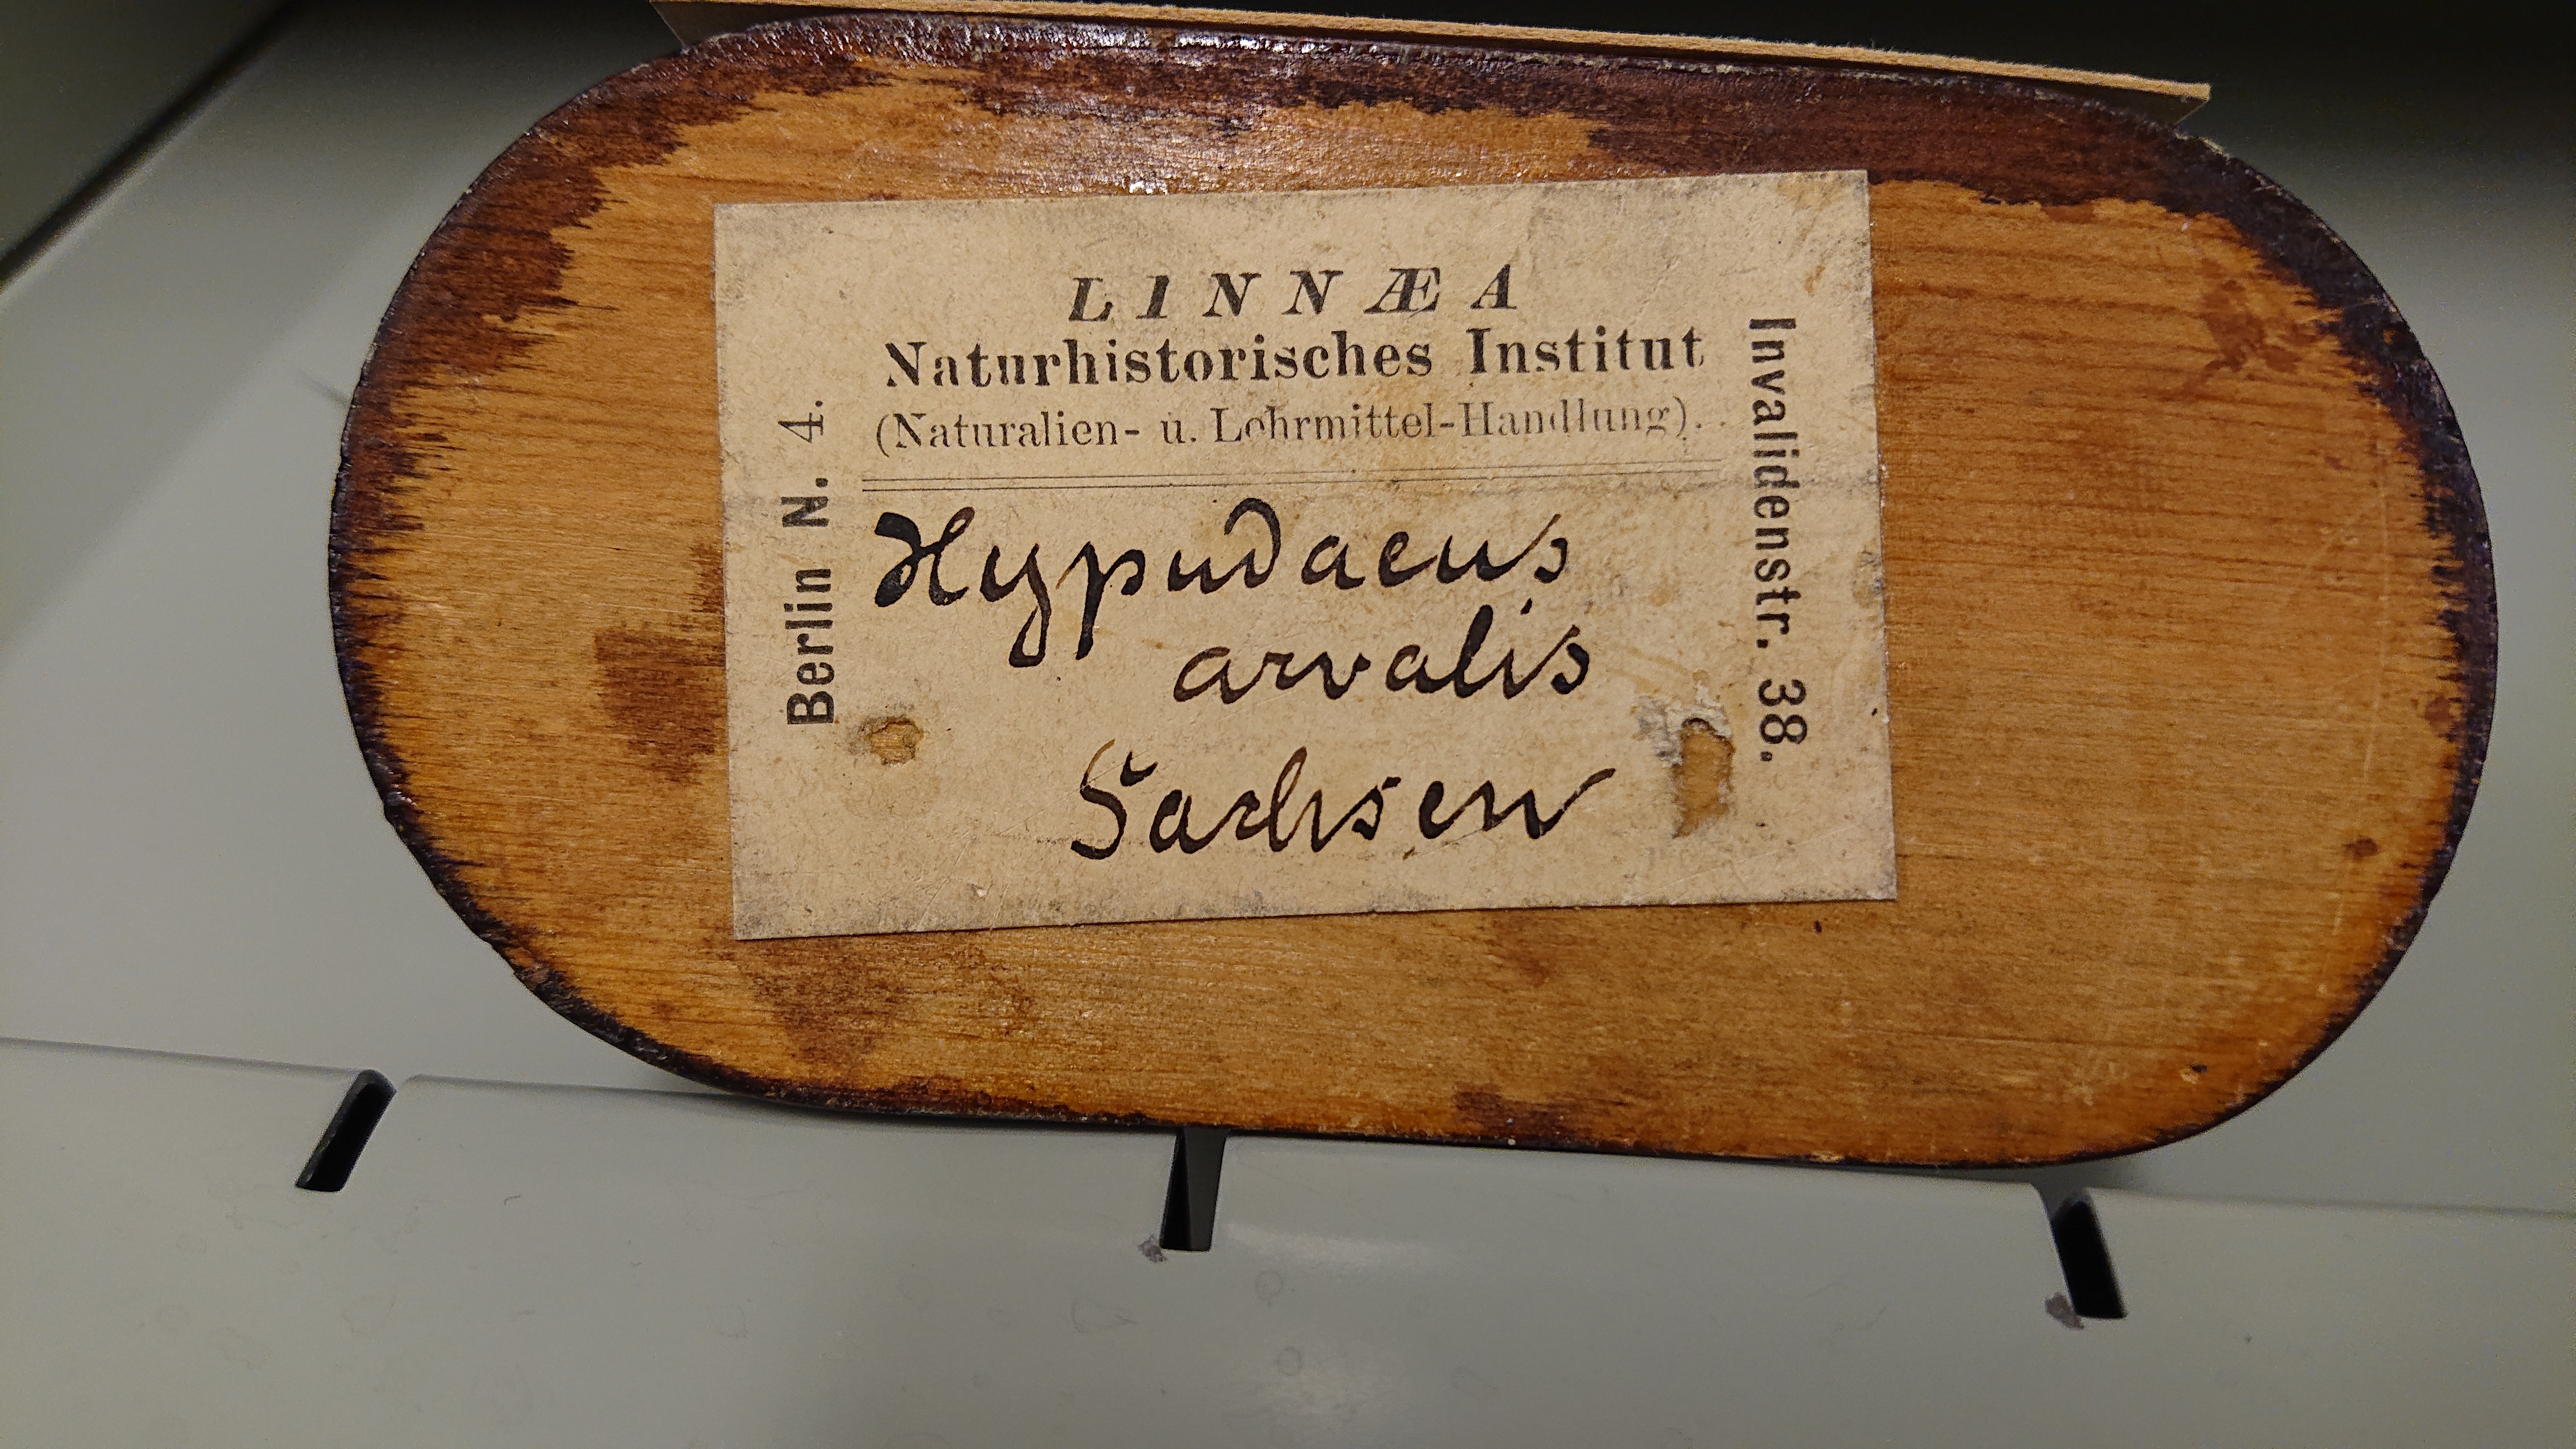 LINNÆA
Naturhistorisches Institut
(Naturalien- u. Lehrmittel-Handlung).
Berlin N. 4.
Invalidenstr. 38.
Hypudaeus
arvalis
Sachsen